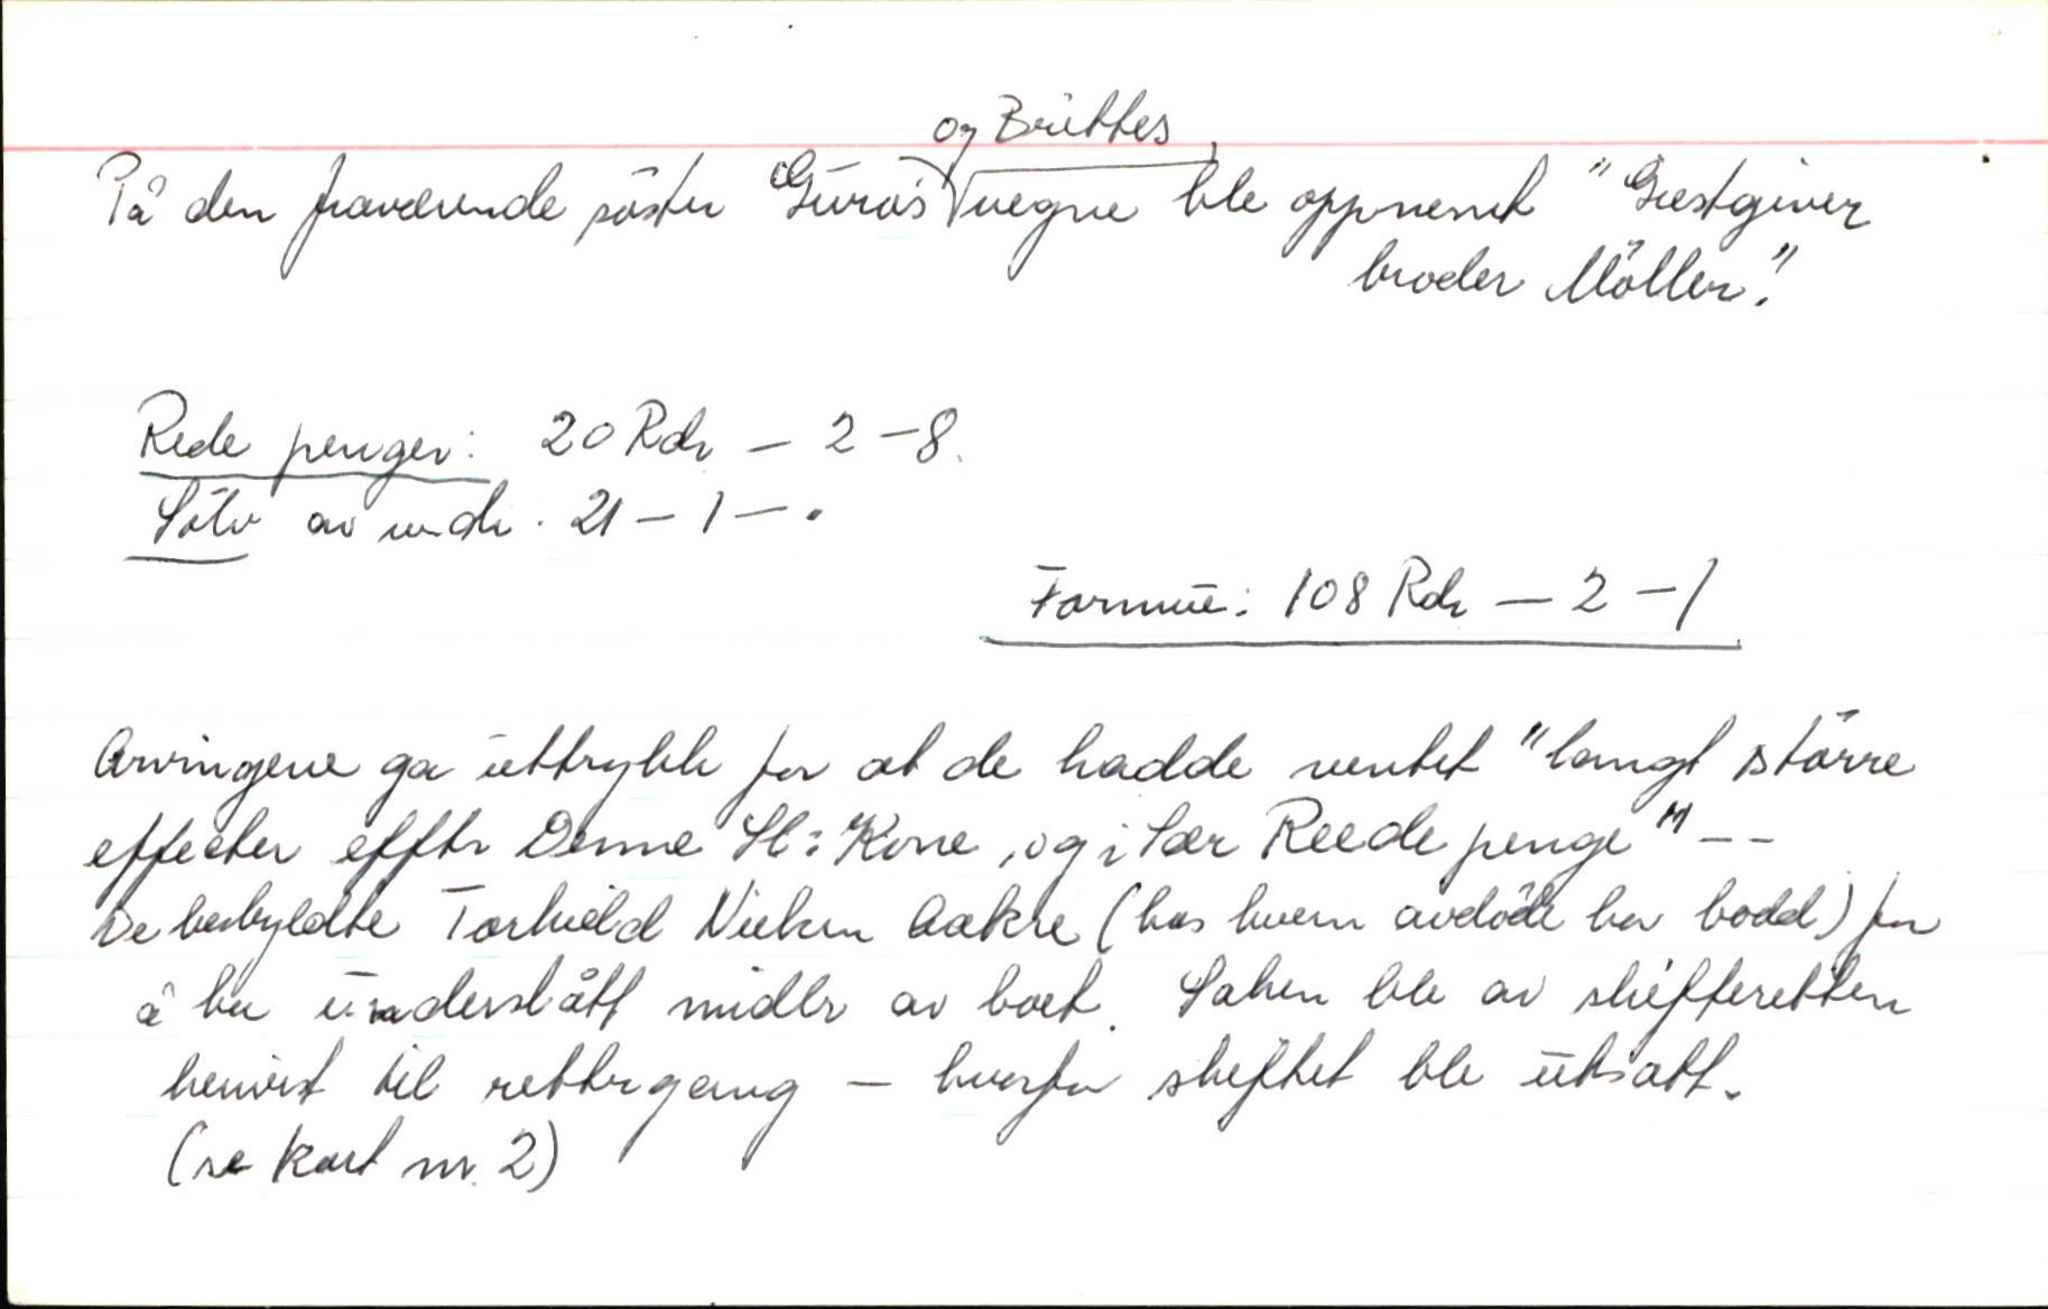 og Brittes
På den fraværende søster Guros vegne ble oppnevnt "Giestgiver
broder Möller."
Rede penger: 20 Rdr — 2 — 8.
Sölv av verdi. 21 — 1 — .
Formue: 108 Rdr — 2 — 1
Arvingene ga uttrykk for at de hadde ventet "langt större
effecter effter Denne Sl: Kone, og i Sær Reede penge" --
De beskyldte Torkield Nielsen Aakre (hos hvem avdöde har bodd) for
å ha underslått midler av boet. Saken ble av skifteretten
henvist til rettergang — hvorfor skiftet ble utsatt.
(se kort nr. 2)